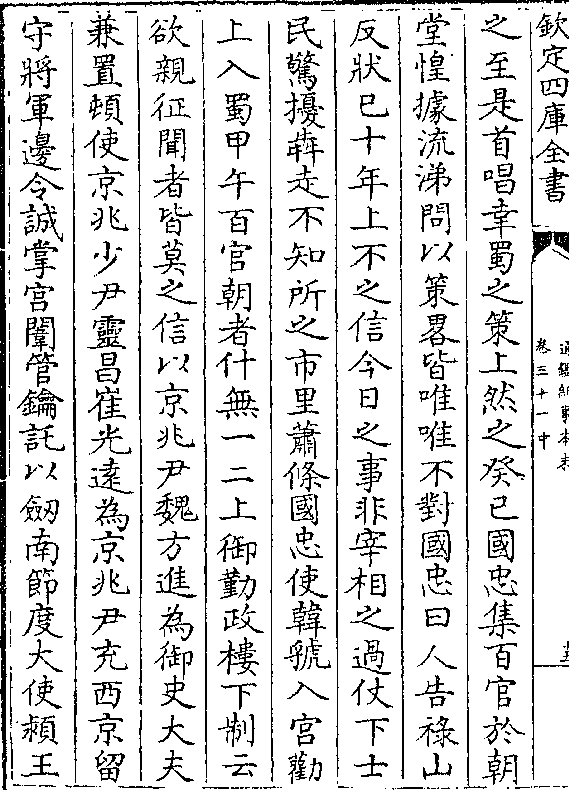 欽定四庫全書
通鑑紀事本末
卷三十一中
之至是首唱幸蜀之策上然之癸已國忠集百官於朝
堂惶據流涕問以策畧皆唯唯不對國忠曰人告祿山
反狀已十年上不之信今日之事非宰相之過仗下士
民驚擾犇走不知所之市里蕭條國忠使韓虢入宮勸
上入蜀甲午百官朝者什無一二上御勤政樓下制云
欲親征聞者皆莫之信以京兆尹魏方進為御史大夫
兼置頓使京兆少尹靈昌崔光逺為京兆尹充西京留
守將軍邊令誠掌宫闈管鑰託以劔南節度大使潁王